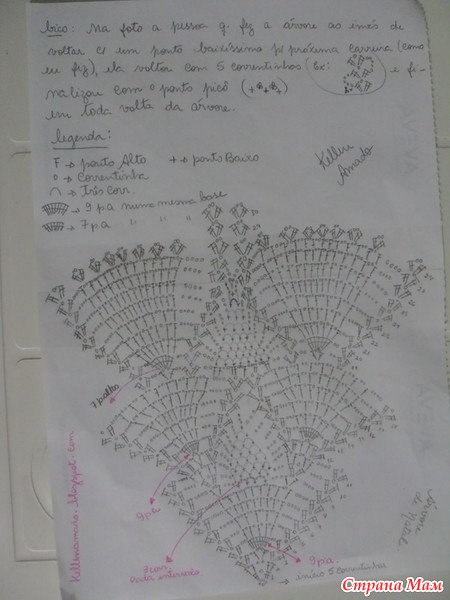 bico: na foto a pessoa q. fez a árvore ao invés de
voltar c/ um ponto baixíssimo p/ próxima carreira (como
eu fiz), ela voltou com 5 correntinhas (Ex: e fi-
nalizou com o ponto picô
em toda volta da árvore.
legenda:
F → ponto Alto + → ponto Baixo
o → Correntinha
→ Três Corr.
→ 9 pa numa mesma base
→ 7 pa " " "
Kellen
Amado
7 pontos
9pa
9pa
início 5 correntinhas
Kellenamado.blogspot.com
Árvore
de Natal
Страна Мам